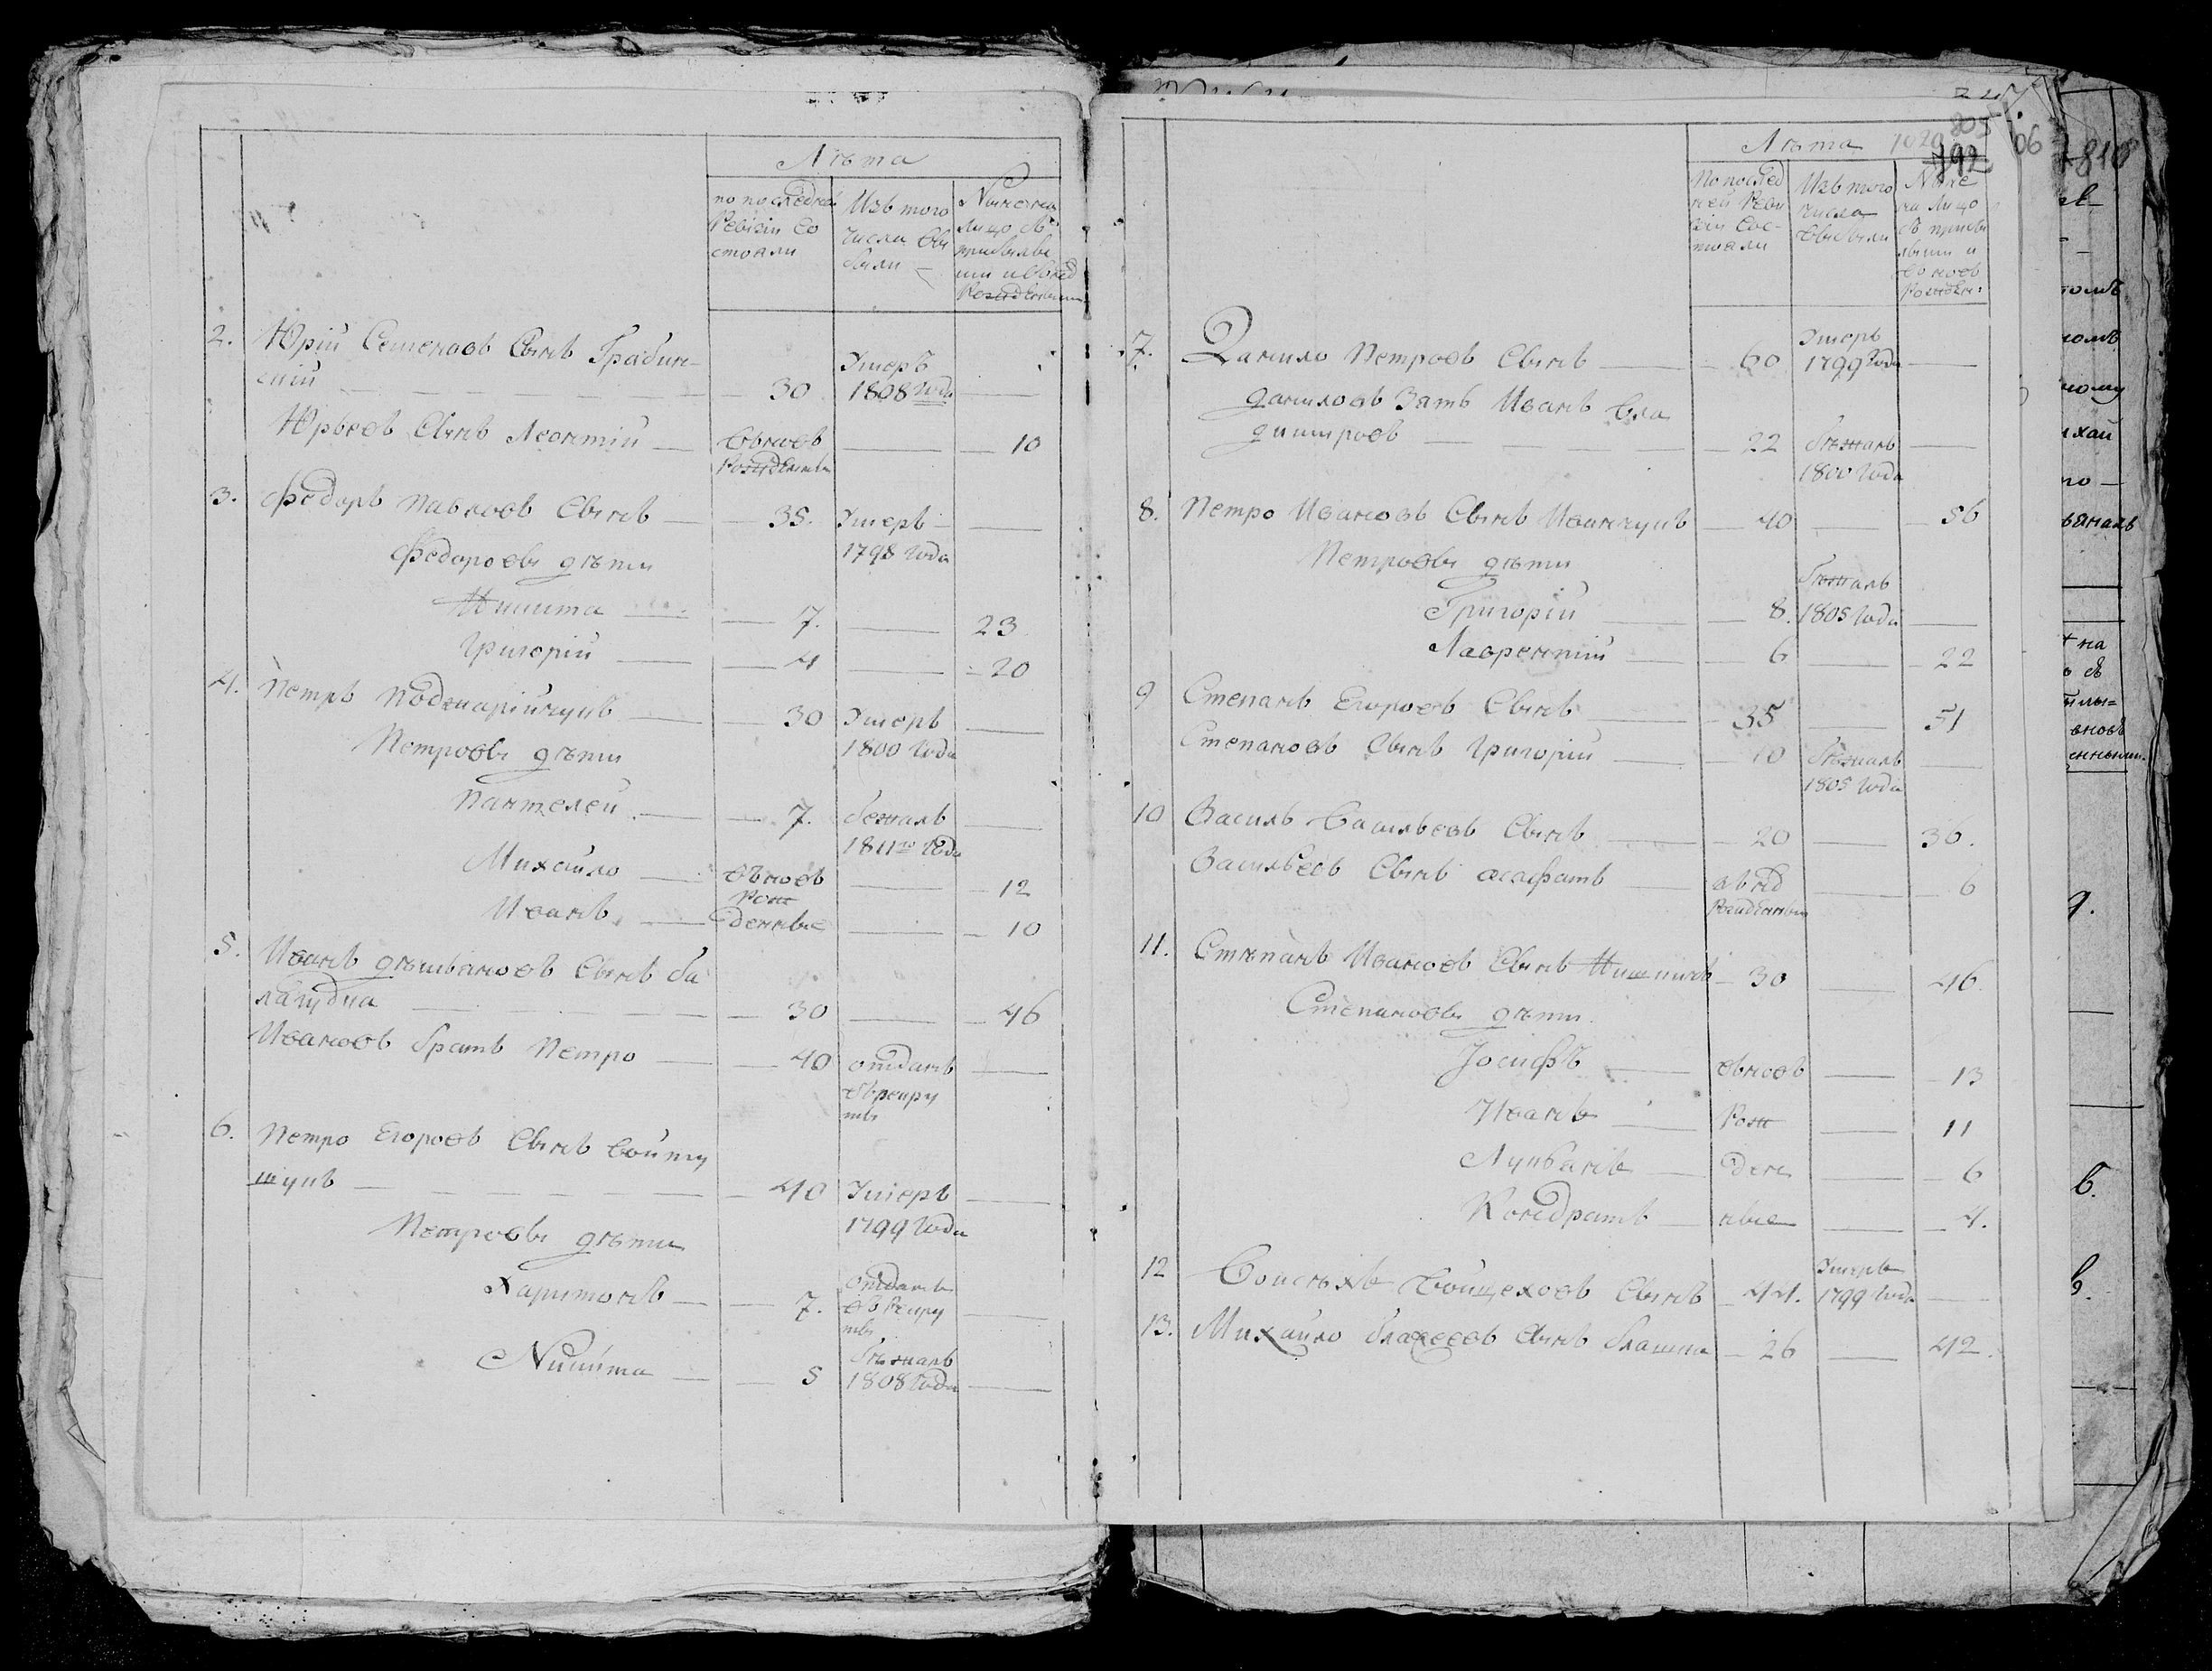 Лѣта
по последней Ревизіи Со стояли
Изъ того числа вы были
Ныне на лицо съ прибылы ми и вновь Рожденными
2. Юрій Семеновъ Сынъ Грабин-
скій 30 Умеръ 1808 года
Юрьевъ Сынъ Леонтій вьновъ Рожденный 10
3. Федоръ Павловъ Сынъ 35. Умеръ 1798 года
Федоровы дѣти
Никита 7. 23
Григорій 4 20
4. Петръ Подмарійчукъ 30 Умеръ 1800 года
Петровы дѣти
Пантелей 7. бежалъ 1811го года
Михайло вьновъ Рож 12
Иванъ денные 10
5. Иванъ Сынъ ба
30 46
Ивановъ братъ Петро 40 отданъ въ рекру ты
6. Петро Егоровъ Сынъ Войту
шукъ 40 Умеръ 1799 года
Петровы дѣти
Харитонъ 7. отданъ въ Рекру ты
Никита 5 бѣжалъ 1808 года
792
Лѣта
По послед ней Реви зіи Сос- тояли
Изъ того числа выбыли
Ныне на лицо съ прибы лыми и вновь Рожден:
7. Данило Петровъ Сынъ 60 Умеръ 1799 года
Даниловъ Зять Иванъ Вла
димировъ 22 бѣжалъ 1800 года
8. Петро Ивановъ Сынъ Иванчукъ 40 56
Петровы дѣти
Григорій 8. бѣжалъ 1805 года
Лаврентій 6 22
9 Степанъ Егоровъ Сынъ 35 51
Степановъ Сынъ Григорій 10 бѣжалъ 1805 года
10 Василь Васильевъ Сынъ 20 36.
Васильевъ Сынъ асафатъ Рожденный 6
11. Стѣпанъ Ивановъ Сынъ 30 46.
Степановы дѣти
Іосифъ вьновъ 13
Иванъ Рож 11
Лукьанъ ден 6
Кондратъ ные 4.
12 Войцеховъ Сынъ 44. Умеръ 1799 года
13. Михайло Сынъ 26 42.